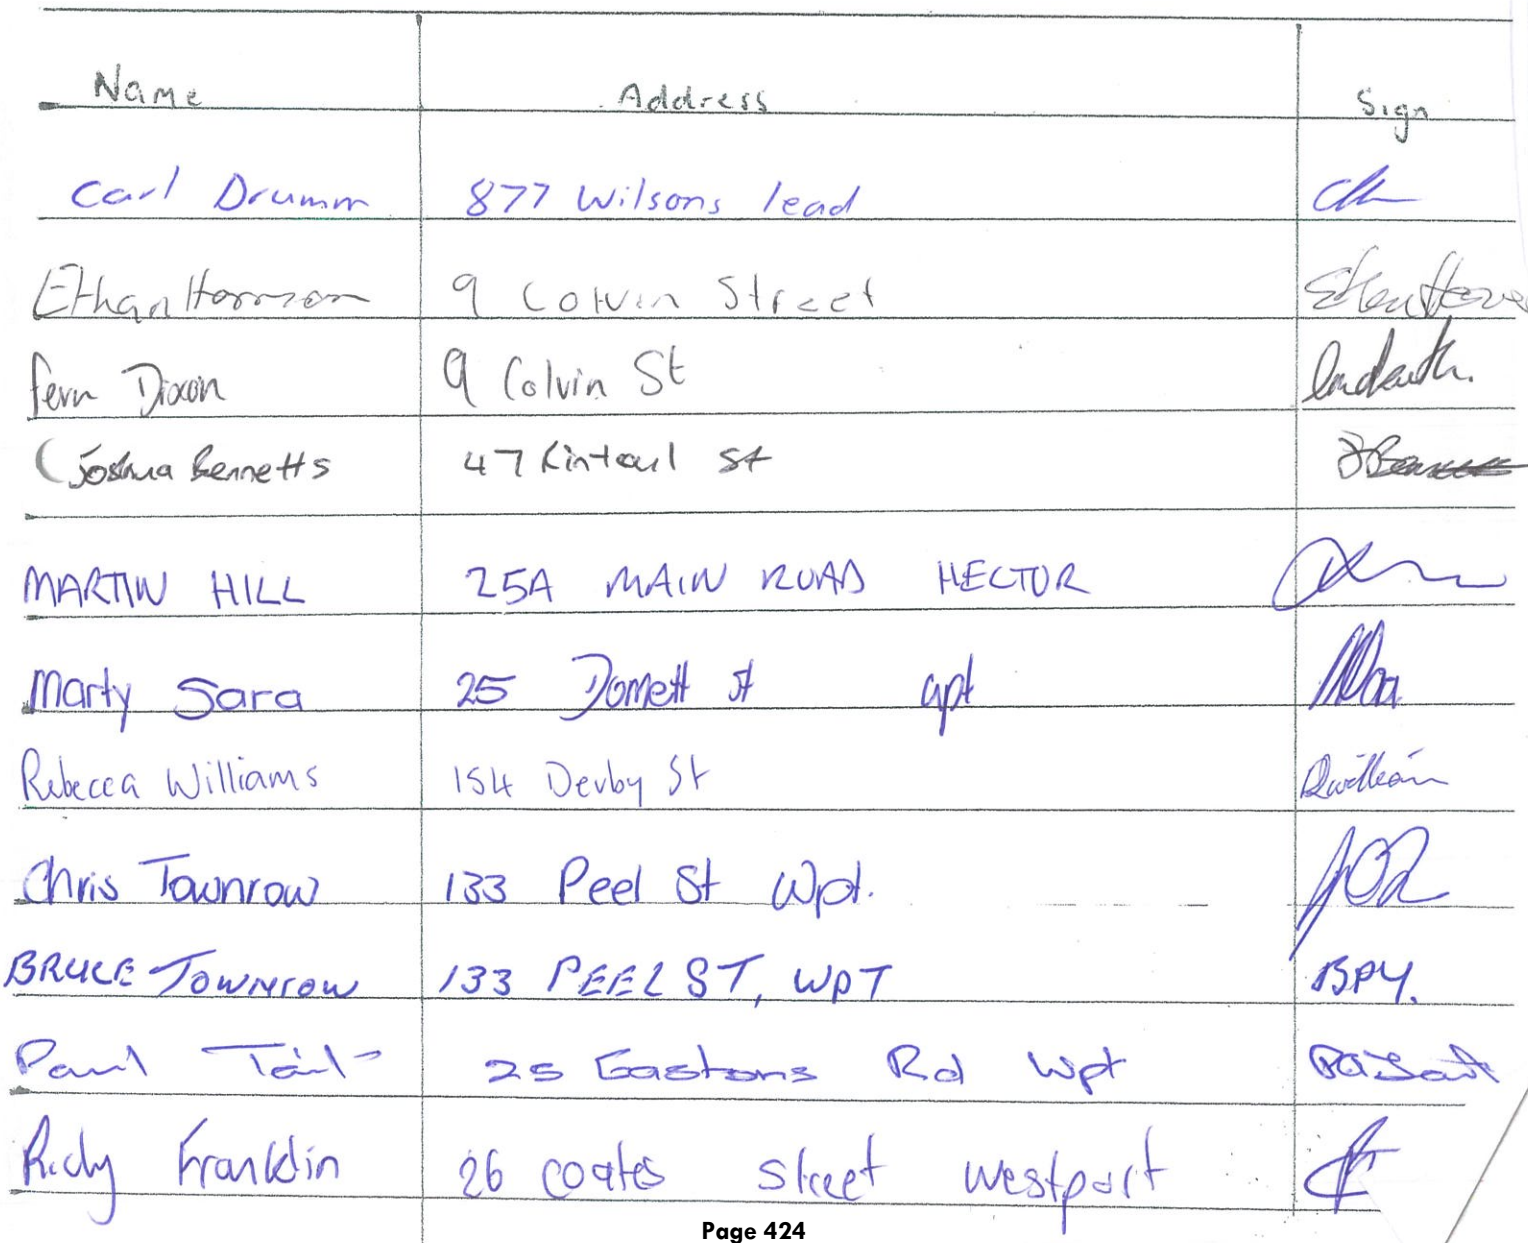 Name Address Sign
Carl Drumm 877 Wilsons lead
Ethan Harrison 9 Colvin Street
Fern Dixon 9 Colvin St
Joshua Bennetts 47 Kintail St
MARTIN HILL 25A MAIN ROAD HECTOR
Marty Sara 25 Domett St wpt
Rebecca Williams 154 Derby St RWilliams
Chris Townrow 133 Peel St Wpt.
BRUCE TOWNROW 133 PEEL ST, WPT
Paul Tait 25 Eastons Rd Wpt
Ricky Franklin 26 coates street westport
Page 424